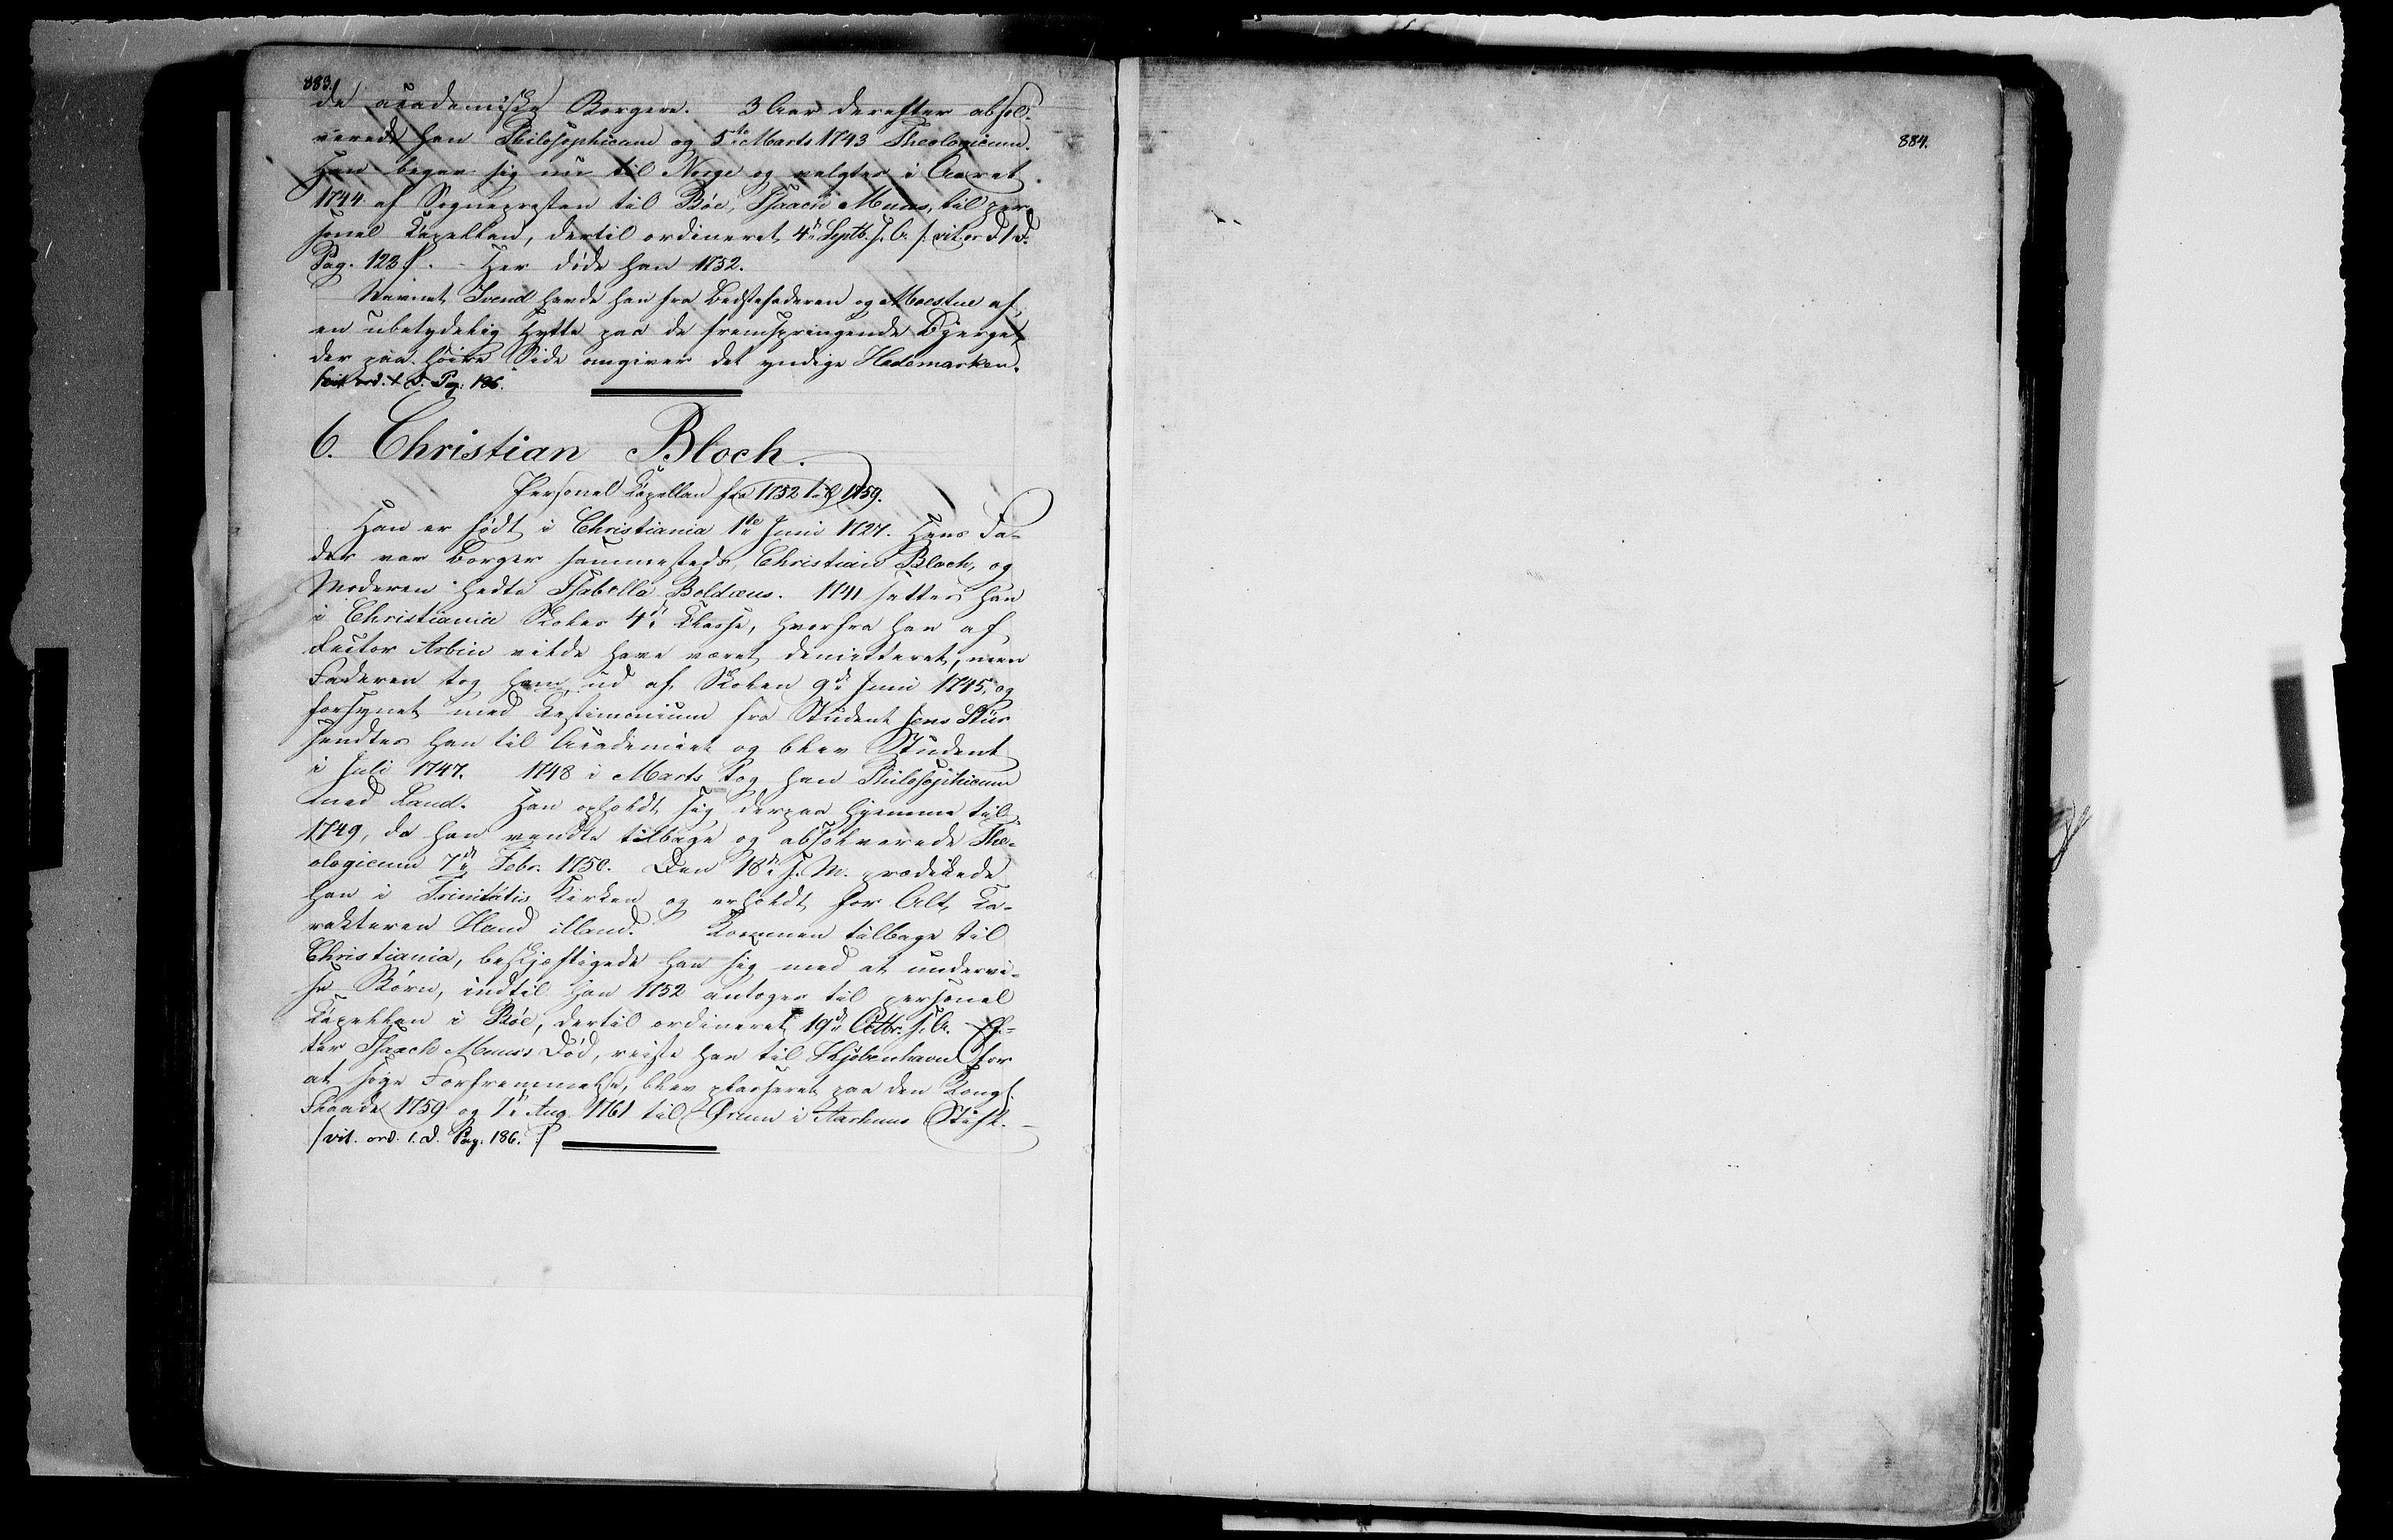 883.
de academiske Borgere. 3 Aar derefter absol-
verede han Philosophicum og 5te Marts 1743 Theologicum.
Han begav sig nu til Norge og valgtes i Aaret
1744 af Sognepresten til Böe, Isaach Muus, til per-
sonel Kapellan, dertil ordineret 4de Septb. s. A. /: vit. ord. 1. d.
Pag. 123 :/. - Her döde han 1752.
Navnet Svend havde han fra Bedstefaderen og Moestue af
en ubetydelig Hytte paa de fremspringende Bjerge,
der paa höire Side omgiver det yndige Hedemarken.
/vit. ord. 1. d. Pag. 186.
6. Christian Bloch.
Personel Kapellan fra 1752 til 1759.
Han er födt i Christiania 1te Juni 1727. Hans Fa-
der var Borger sammesteds, Christian Bloch, og
Moderen hedte Isabella Boldæus. 1741 sattes han
i Christiania Skoles 4de Klasse, hvorfra han af
Rector Arbin vilde have været demitteret, men
Faderen tog ham ud af Skolen 9de Juni 1745, og
forsynet med Testimonium fra Student Jens
sendtes han til Academiet og blev Student
i Juli 1747. 1748 i Marts tog han Philosophicum
med Laud. Han opholdt sig derpaa hjemme til
1749, da han vendte tilbage og absolverede The-
ologicum 7de Febr. 1750. Den 18de s. M. prædikede
han i Trinitatis Kirken og erholdt for Alt Ka-
rakteren Haud illaud. Kommen tilbage til
Christiania, beskjæftigede han sig med at undervi-
se Börn, indtil han 1752 antoges til personel
Kapellan i Böe, dertil ordineret 19de Octbr. s. A. Ef-
ter Isaach Muus's Död, reiste han til Kjöbenhavn for
at söge Forfremmelse, blev placeret paa den Kongl.
Flaade 1759 og 7de Aug. 1761 til Örum i Aarhuus Stift. -
/vit. ord. 1. d. Pag. 186. :/
884.